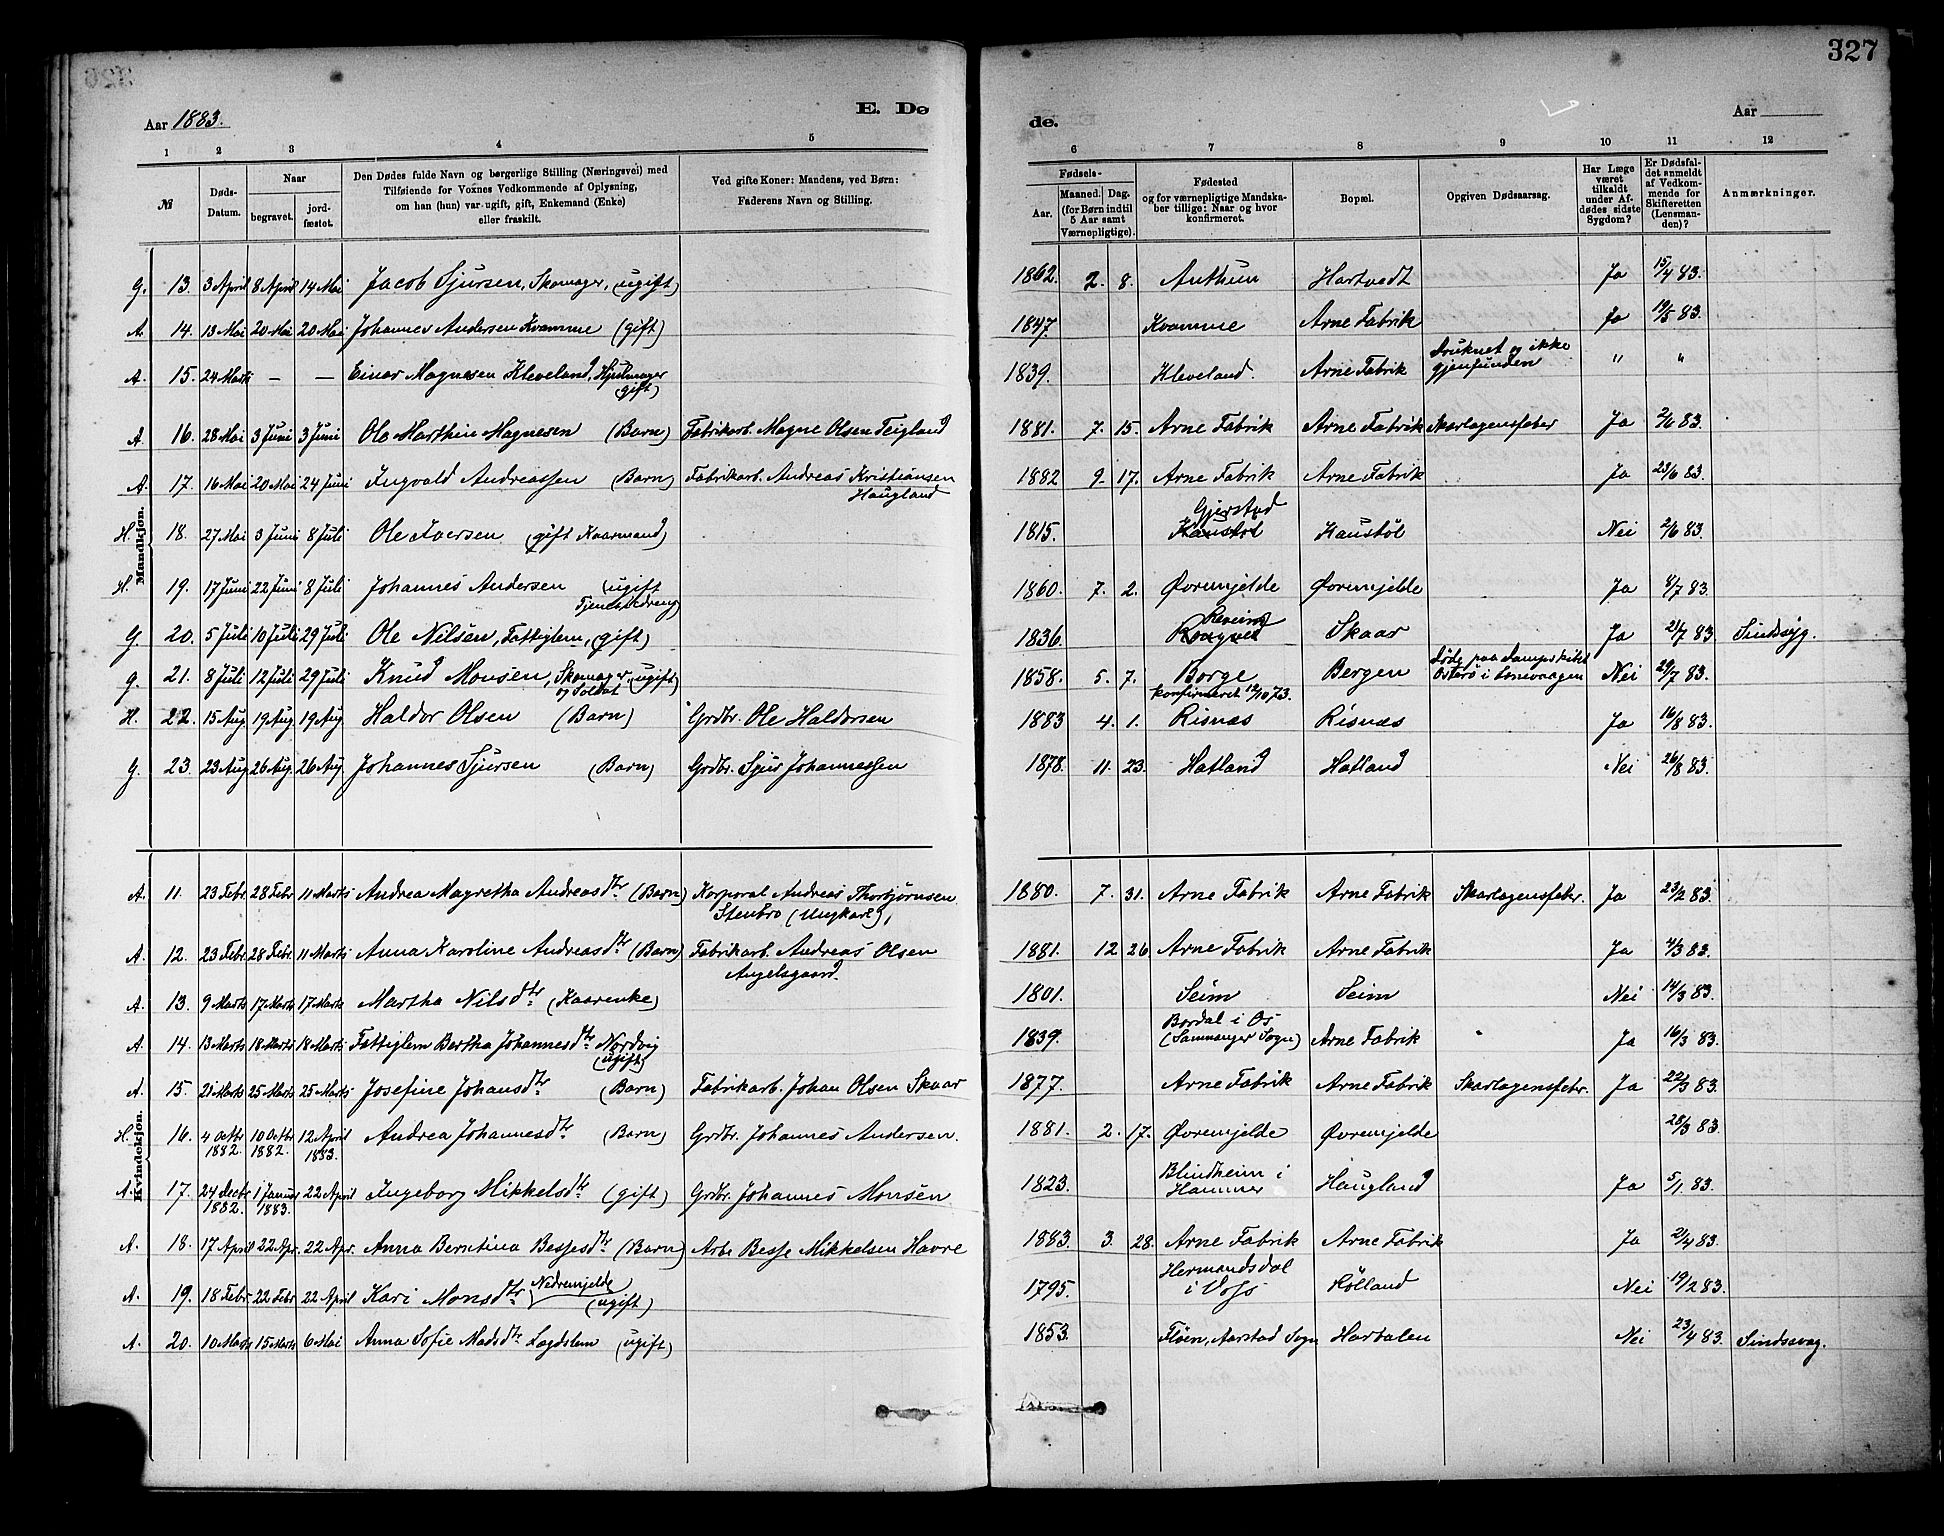 327
Aar 1883.
E. Dø
de.
Aar
1 2 3 4 5
6 7 8 9 10 11 12
№
Døds-Datum.
Naar
begravet. jordfæstet.
Den Dødes fulde Navn og borgerlige Stilling (Næringsvei) med
Tilføiende for Voxnes Vedkommende af Oplysning,
om han (hun) var ugift, gift, Enkemand (Enke)
eller fraskilt.
Ved gifte Koner: Mandens, ved Børn:
Faderens Navn og Stilling.
Fødsels-
Aar. Maaned. Dag.
(for Børn indtil
5 Aar samt
Værnepligtige).
Fødested
og for værnepligtige Mandska-
ber tillige: Naar og hvor
konfirmeret.
Bopæl.
Opgiven Dødsaarsag.
Har Læge
været
tilkaldt
under Af-
dødes sidste
Sygdom?
Er Dødsfal-
det anmeldt
af Vedkom-
mende for
Skifteretten
(Lensman-
den)?
Anmærkninger.
Mandkjøn.
G. 13. 3 April 8 April 14 Mai Jacob Sjursen, Skomager, (ugift) 1862. 2. 8. Authun Hartvedt Ja 15/4 83.
A. 14. 13 Mai 20 Mai 20 Mai Johannes Andersen Kvamme (gift) 1847. Kvamme Arne Fabrik Ja 19/5 83.
A. 15. 24 Marts — — Einar Magnesen Kleveland, Hjulmager 1839. Kleveland. Arne Fabrik Druknet og ikke " "
(gift) gjenfunden
A. 16. 28 Mai 3 Juni 3 Juni Ole Marthin Magnesen (Barn) Fabrikarb. Magne Olsen Teigland 1881. 7. 15. Arne Fabrik Arne Fabrik Skarlagensfeber Ja 2/6 83.
A. 17. 16 Mai 20 Mai 24 Juni Ingvald Andreassen (Barn) Fabrikarb. Andreas Kristiansen 1882 9. 17. Arne Fabrik Arne Fabrik Ja 23/6 83.
Haugland
Gjerstad
H. 18. 27 Mai 3 Juni 8 Juli Ole Iversen (gift Kaarmand) 1815. Kaustøl Kaustøl Nei 2/6 83.
H. 19. 17 Juni 22 Juni 8 Juli Johannes Andersen (ugift 1860. 7. 2. Øvremjelde Øvremjelde Ja 8/7 83.
Tjenestdreng)
G. 20. 5 Juli 10 Juli 29 Juli Ole Nilsen, Fattiglem, (gift) 1836. Skaar Ja 21/7 83 Sindssyg.
G. 21. 8 Juli 12 Juli 29 Juli Knud Monsen, Skomager (ugift) 1858. 5. 7. Borge Bergen Døde paa Dampskibet Nei 29/7 83.
og Soldat konfirmeret 12/10 73. Osterø i Lonevaagen
H. 22. 15 Aug 19 Aug 19 Aug Haldor Olsen (Barn) Grdbr. Ole Haldorsen 1883 4. 1. Risnæs Risnæs Ja 16/8 83.
G. 23. 23 Aug 26 Aug. 26 Aug. Johannes Sjursen (Barn) Grdbr. Sjur Johannessen 1878. 11. 23. Hatland Hatland Nei 26/8 83.
Kvindekjøn.
A. 11. 23 Febr 28 Febr 11 Marts Andrea Magretha Andreasdtr (Barn) Korporal Andreas Thorbjørnsen 1880. 7. 31. Arne Fabrik Arne Fabrik Skarlagensfeber. Ja 23/2 83.
Stenbro (Ungkarl),
A. 12. 23 Febr. 28 Febr. 11 Marts Anna Karoline Andreasdtr (Barn) Fabrikarb. Andreas Olsen 1881. 12 26 Arne Fabrik Arne Fabrik Ja 4/3 83.
Angelsgaard.
A. 13. 9 Marts 17 Marts 17 Marts Martha Nilsdtr (Kaarenke) 1801. Seim Seim Nei 14/3 83.
A. 14. 13 Marts 18 Marts 18 Marts Fattiglem Bertha Johannesdtr Nordvig 1839. Bordal i Os Arne Fabrik Ja 16/3 83.
(ugift) (Sammanger Sogn)
A. 15. 21 Marts 25 Marts 25 Marts Josefine Johansdtr (Barn) Fabrikarb. Johan Olsen Skaar 1877. Arne Fabrik Arne Fabrik Skarlagensfebr. Ja 22/3 83.
H. 16. 4 Octbr 10 Octbr 12 April Andrea Johannesdtr (Barn) Grdbr. Johannes Andersen. 1881. 2. 17. Øvremjelde Øvremjelde 28/3 83.
1882. 1882. 1883.
A. 17. 24 Decbr 1 Januar 22 April Ingeborg Mikkelsdtr (gift) Grdbr. Johannes Monsen 1823. Blindheim i Haugland Ja 5/1 83.
1882. 1883. Hammer
A. 18. 17 April 22 Apr. 22 Apr. Anna Berntina Bessesdtr (Barn) Arb. Besse Mikkelsen Havre 1883. 3. 28. Arne Fabrik Arne Fabrik Ja 2/4 83.
A. 19. 18 Febr 22 Febr 22 April Kari Monsdtr Nedremjelde 1795. Hermandsdal Hølland Nei 19/2 83.
(ugift) i Voss
A. 20. 10 Marts 15 Marts 6 Mai Anna Sofie Madsdtr Lægdslem (ugift) 1853. Fløen, Aarstad Sogn Nei 23/4 83. Sindssvag.